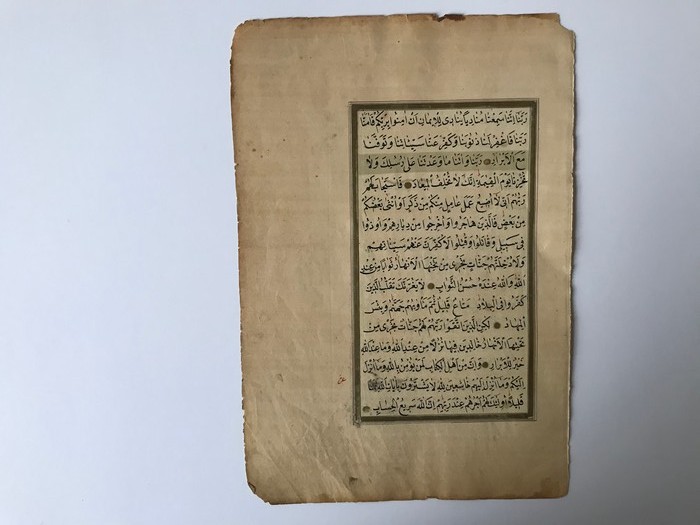 رَبَّنَا اِنَّنَا سَمِعْنَا مُنَادِيًا يُنَادِى لِلْاِيمَانِ اَنْ اٰمِنُوا بِرَبِّكُمْ فَاٰمَنَّا
رَبَّنَا فَاغْفِرْ لَنَا ذُنُوبَنَا وَكَفِّرْ عَنَّا سَيِّئَاتِنَا وَتَوَفَّنَا
مَعَ الْاَبْرَارِ رَبَّنَا وَاٰتِنَا مَا وَعَدْتَنَا عَلٰى رُسُلِكَ وَلَا
تُخْزِنَا يَوْمَ الْقِيٰمَةِ اِنَّكَ لَا تُخْلِفُ الْمِيعَادَ فَاسْتَجَابَ لَهُمْ
رَبُّهُمْ اَنِّى لَا اُضِيعُ عَمَلَ عَامِلٍ مِنْكُمْ مِنْ ذَكَرٍ اَوْ اُنْثٰى بَعْضُكُمْ
مِنْ بَعْضٍ فَالَّذِينَ هَاجَرُوا وَاُخْرِجُوا مِنْ دِيَارِهِمْ وَاُوذُوا
فِى سَبِيلِى وَقَاتَلُوا وَقُتِلُوا لَاُكَفِّرَنَّ عَنْهُمْ سَيِّئَاتِهِمْ
وَلَاُدْخِلَنَّهُمْ جَنَّاتٍ تَجْرِى مِنْ تَحْتِهَا الْاَنْهَارُ ثَوَابًا مِنْ عِنْدِ
اللّٰهِ وَاللّٰهُ عِنْدَهُ حُسْنُ الثَّوَابِ لَا يَغُرَّنَّكَ تَقَلُّبُ الَّذِينَ
كَفَرُوا فِى الْبِلَادِ مَتَاعٌ قَلِيلٌ ثُمَّ مَأْوٰيهُمْ جَهَنَّمُ وَبِئْسَ
الْمِهَادُ لٰكِنِ الَّذِينَ اتَّقَوْا رَبَّهُمْ لَهُمْ جَنَّاتٌ تَجْرِى مِنْ
تَحْتِهَا الْاَنْهَارُ خَالِدِينَ فِيهَا نُزُلًا مِنْ عِنْدِ اللّٰهِ وَمَا عِنْدَ اللّٰهِ
خَيْرٌ لِلْاَبْرَارِ وَاِنَّ مِنْ اَهْلِ الْكِتَابِ لَمَنْ يُؤْمِنُ بِاللّٰهِ وَمَا اُنْزِلَ
اِلَيْكُمْ وَمَا اُنْزِلَ اِلَيْهِمْ خَاشِعِينَ لِلّٰهِ لَا يَشْتَرُونَ بِاٰيَاتِ اللّٰهِ
قَلِيلًا اُولٰئِكَ لَهُمْ اَجْرُهُمْ عِنْدَ رَبِّهِمْ اِنَّ اللّٰهَ سَرِيعُ الْحِسَابِ